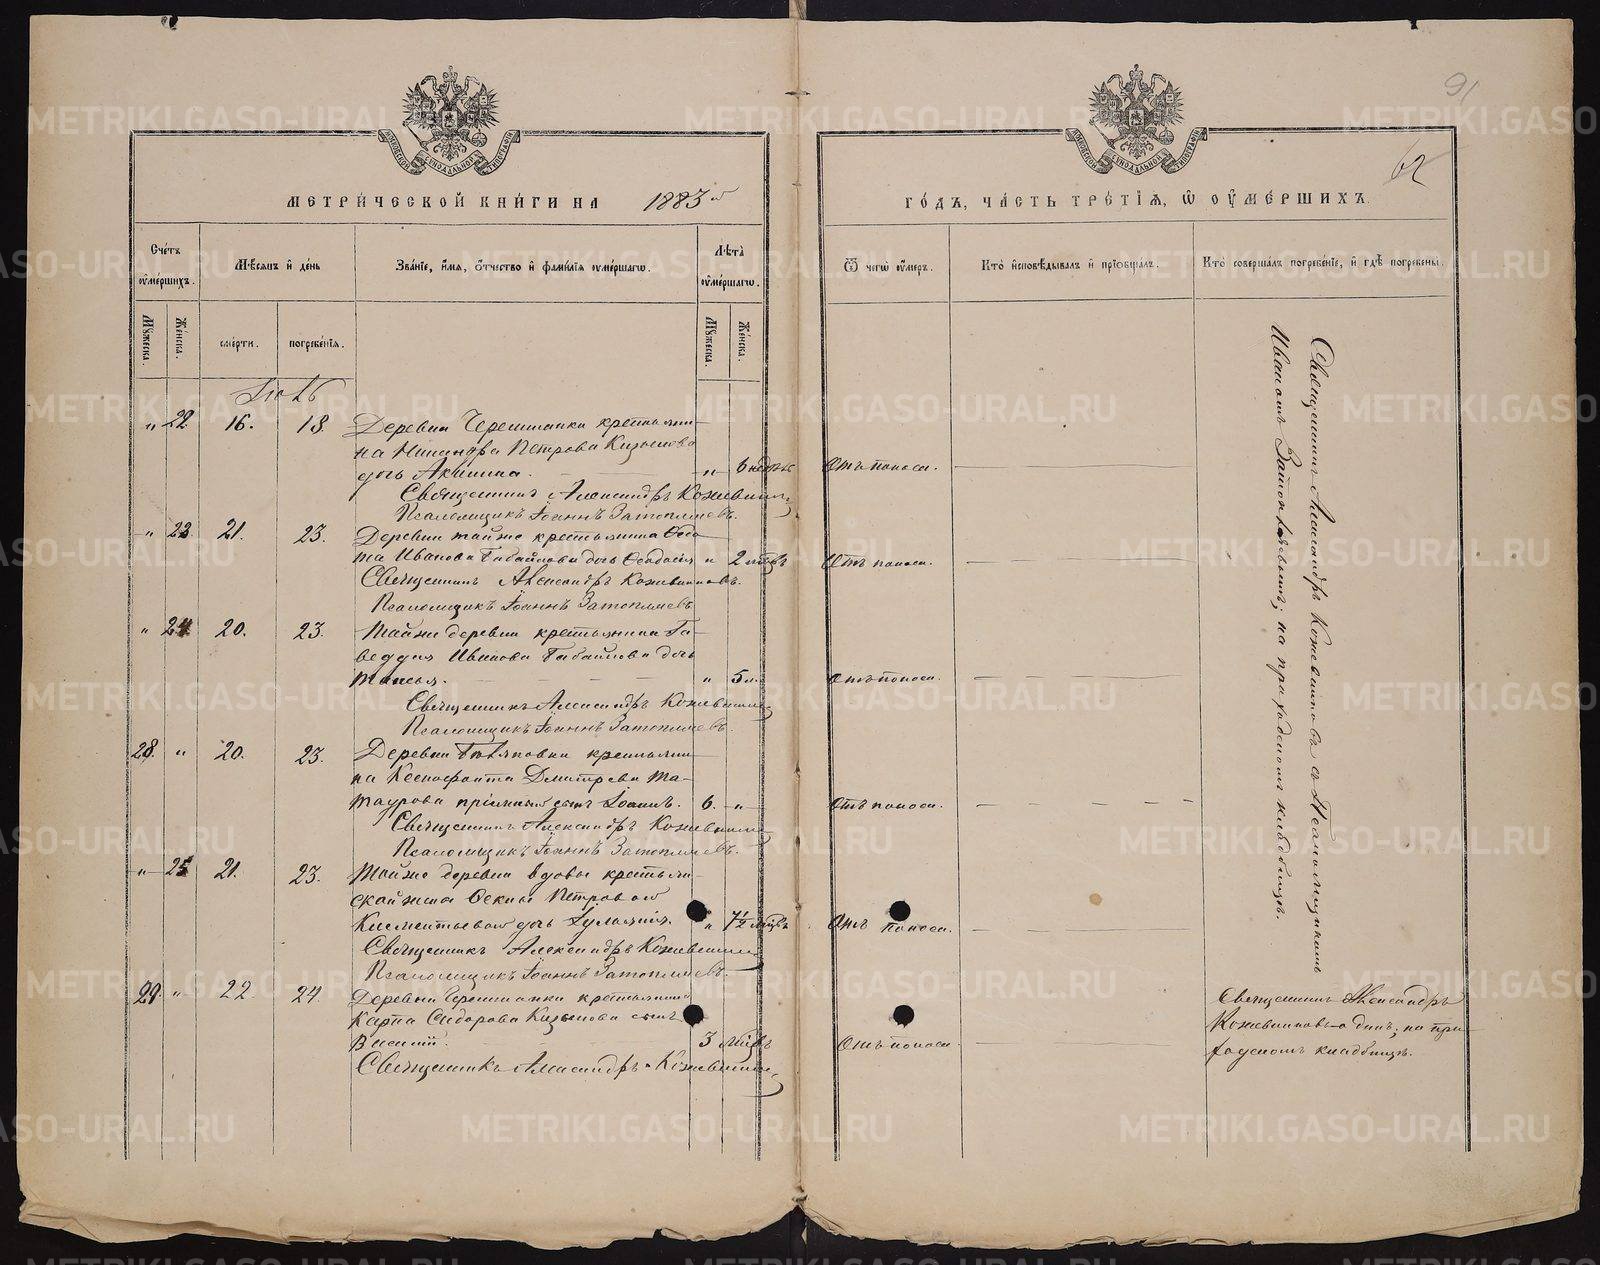 91
62
МЕТРИЧЕСКОЙ КНИГИ НА 1883 й
ГОДЪ, ЧАСТЬ ТРЕТІЯ, Ѿ ОУМЕРШИХЪ.
Счетъ оумершихъ.
Мѣсяцъ и день
Званіе, имя, отчество и фамилія оумершагѡ.
Лѣта оумершагѡ.
Ѿ чегѡ оумеръ.
Кто исповѣдывалъ и пріобщалъ.
Кто совершалъ погребеніе, и гдѣ погребены.
Мужеска.
Женска.
смерти.
погребенія.
Мужеска.
Женска.
Іюль
„ 22 16. 18. Деревни Черешланки крестьяни-
на Никандра Петрова
дочь Акилина. „ 6 недѣль Отъ поноса.
Священникъ Александръ Кожевниковъ
Псаломщикъ Іоаннъ Затопляевъ.
„ 23 21. 23. Деревни тойже крестьянина Ѳедо-
та Иванова дочь Ѳеодосія „ 2 мѣсяцъ Отъ поноса.
Священникъ Александръ Кожевниковъ.
Псаломщикъ Іоаннъ Затопляевъ
„ 24 20. 23. Тойже деревни крестьянина
Иванова дочь
Таисья. „ 5 м. Отъ поноса.
Священникъ Александръ Кожевниковъ
Псаломщикъ Іоаннъ Затопляевъ.
28. „ 20. 23. Деревни крестьяни-
на Ксенофонта Дмитрева Та-
таурова пріемный сынъ Іоаннъ. 6. „ Отъ поноса.
Священникъ Александръ Кожевниковъ
Псаломщикъ Іоаннъ Затопляевъ.
„ 25 21. 23. Тойже деревни вдовы крестьян-
ской жена Петровой
Климентьевой дочь „ 7½ мѣсяцъ Отъ поноса.
Священникъ Александръ Кожевниковъ
Псаломщикъ Іоаннъ Затопляевъ.
29. „ 22. 24 Деревни Черешланки крестьянина
Карпа Сидорова сынъ
Василій. 3 мѣсяцъ Отъ поноса.
Священникъ Александръ Кожевниковъ
Священникъ Александръ Кожевниковъ съ Псаломщикомъ
Иваномъ Затопляевымъ; на приходскомъ кладбищѣ.
Священникъ Александръ
Кожевниковъ одинъ; на при-
ходскомъ кладбищѣ.
METRIKI.GASO-URAL.RU